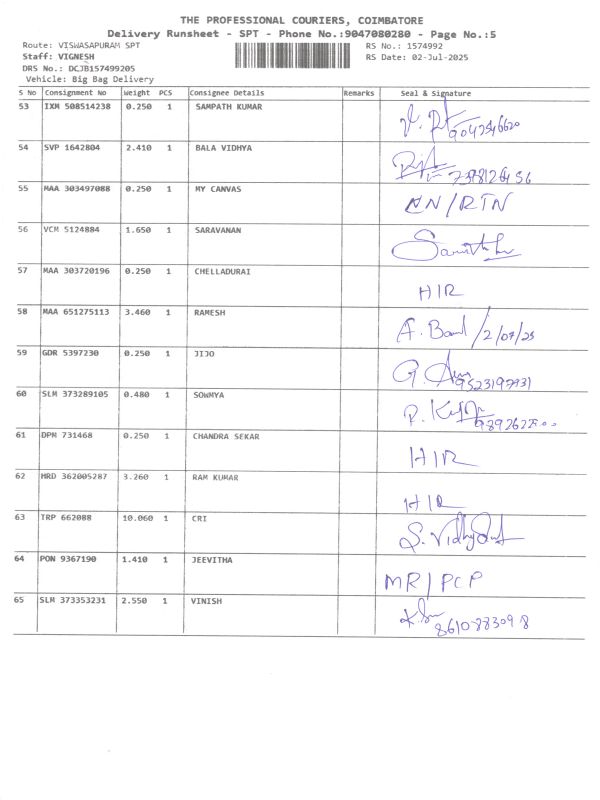 THE PROFESSIONAL COURIERS, COIMBATORE
Delivery Runsheet - SPT - Phone No.:9047080280 - Page No.:5
Route: VISWASAPURAM SPT
RS No.: 1574992
Staff: VIGNESH
RS Date: 02-Jul-2025
DRS No.: DCJB157499205
Vehicle: Big Bag Delivery
S No Consignment No Weight PCS Consignee Details Remarks Seal & Signature
53 IXM 508514238 0.250 1 SAMPATH KUMAR
54 SVP 1642804 2.410 1 BALA VIDHYA
55 MAA 303497088 0.250 1 MY CANVAS NN/RTN
56 VCM 5124884 1.650 1 SARAVANAN
57 MAA 303720196 0.250 1 CHELLADURAI HIR
58 MAA 651275113 3.460 1 RAMESH
59 GDR 5397230 0.250 1 JIJO
60 SLM 373289105 0.480 1 SOWMYA
61 DPM 731468 0.250 1 CHANDRA SEKAR HIR
62 HRD 362005287 3.260 1 RAM KUMAR HIR
63 TRP 662088 10.060 1 CRI
64 PON 9367190 1.410 1 JEEVITHA MR/PCP
65 SLM 373353231 2.550 1 VINISH 8610883098